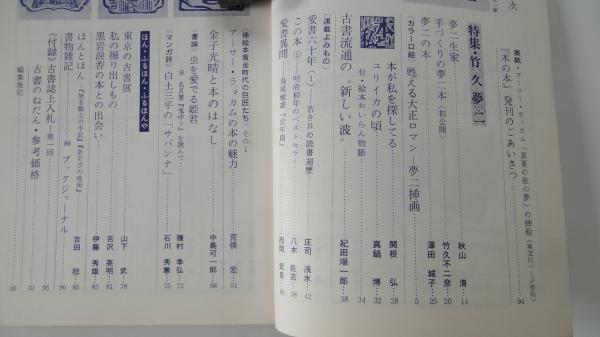 次
表紙・アーサー・ラッカム「真夏の夜の夢」の挿絵(本文51ページ参照)
『本の本』発刊のごあいさつ……94
特集・竹久夢二
夢二生家……秋山 清…14
手づくりの夢二本〈初公開〉……竹久不二彦…20
夢二の本……澤田 城子…25
〈カラー口絵〉甦える大正ロマン 夢二挿画……5
本が私を探してる……関根 弘…28
ユリイカの頃……真鍋 博…32
付・絵本おいらん物語
古書流通の〝新しい波〟……紀田順一郎…38
〔連載よみもの〕
愛書六十年(1)——若き日の読書遍歴……庄司 浅水…42
この本(1)——明治初年のベストセラー……八木 佐吉…58
愛書異聞——島尾敏雄『幼年期』……西岡 武良…60
挿絵本黄金時代の巨匠たち・その1
アーサー・ラッカムの本の魅力……荒俣 宏…51
金子光晴と本のはなし……中島可一郎…66
〔書論〕虫を愛でる姫君……種村 季弘…72
〔マンガ評〕白土三平の「サバンナ」……石川 秀憲…75
ほん・ふるほん・ふるほんや
東京の古書展……山下 武…78
私の掘り出しもの……吉沢 英明…81
黒岩涙香の本との出会い……伊藤 秀雄…83
ほんとほん
書物雑記……吉田 稔…85
86 ブックジャーナル……90
《付録》古書誌上入札 第一回……95
古書のねだん・参考価格
編集後記